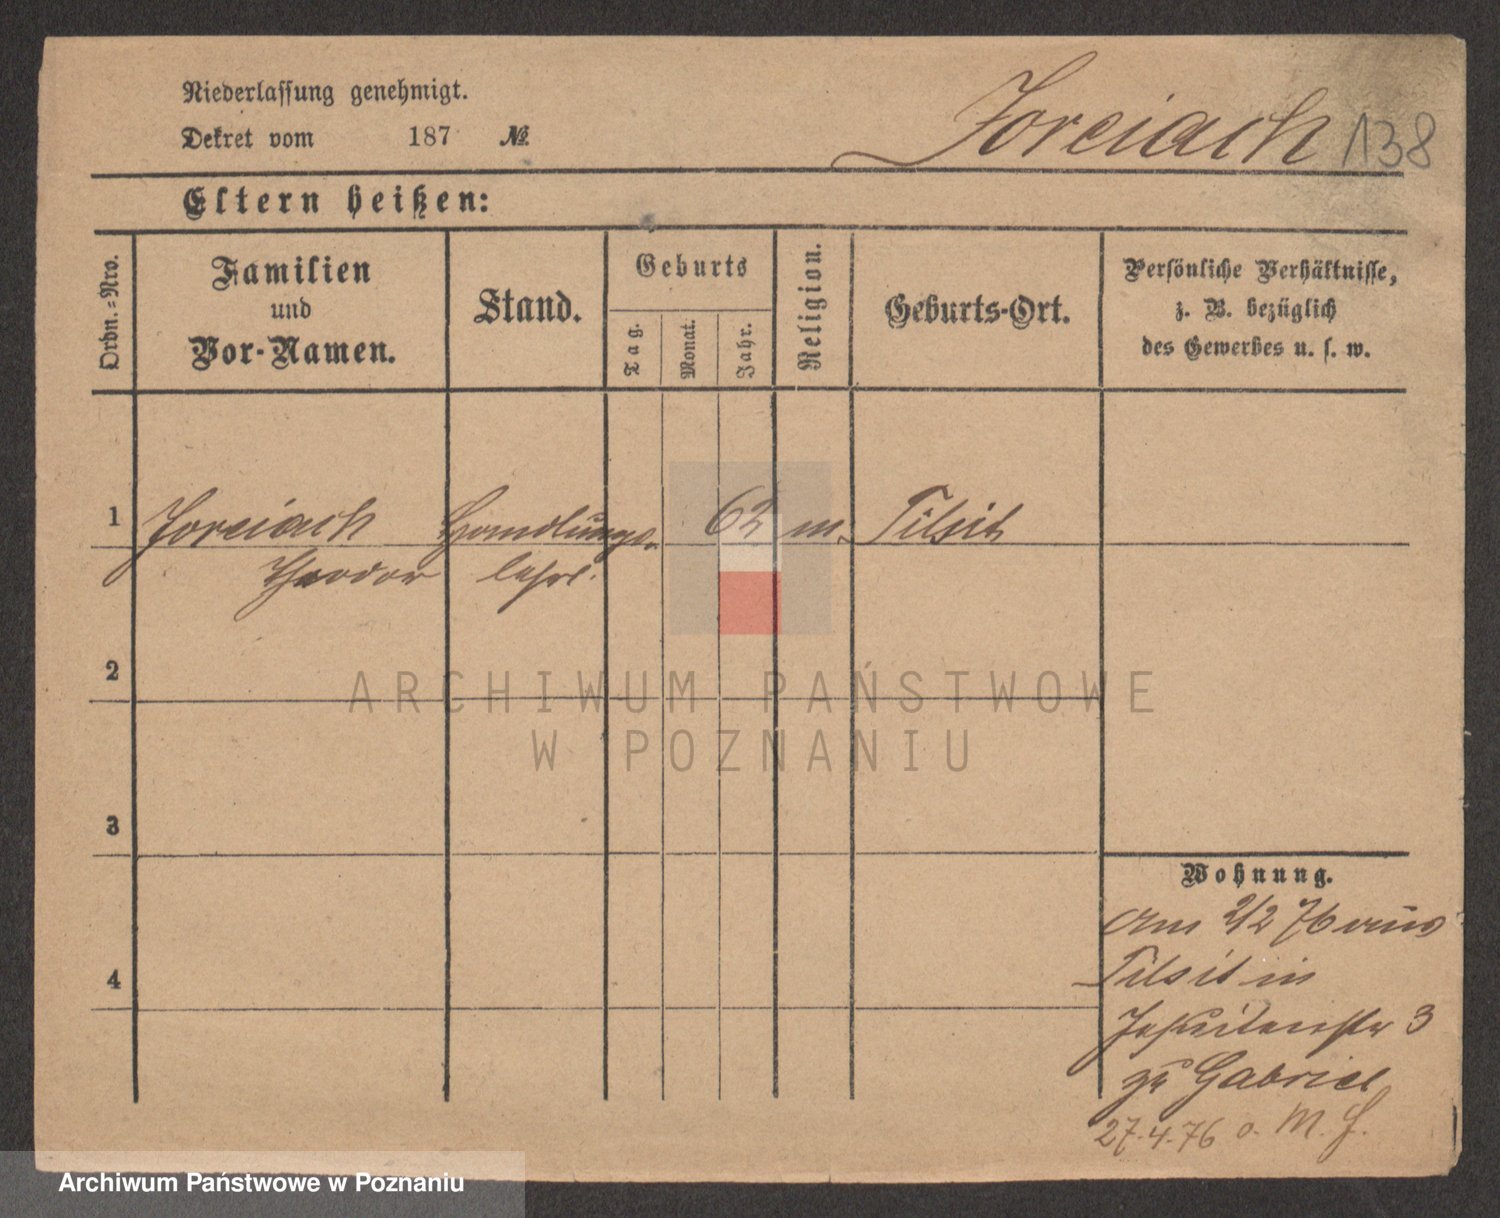 Niederlassung genehmigt.
Dekret vom 187 №
Joreiach 138
Eltern heißen:
Ordn.-Nro.
Familien
und
Vor-Namen.
Stand.
Geburts
Tag.
Monat.
Jahr.
Religion.
Geburts-Ort.
Persönliche Verhältnisse,
z. B. bezüglich
des Gewerbes u. s. w.
1 Joreiach Handlungs- 62 m. Tilsit
Theodor lehrl.
2
3
4
Wohnung.
Am 2/2 76 aus
Tilsit in
Jesuitenstr 3
zu Gabriel
27.4.76 o. M. J.
ARCHIWUM PAŃSTWOWE
W POZNANIU
Archiwum Państwowe w Poznaniu